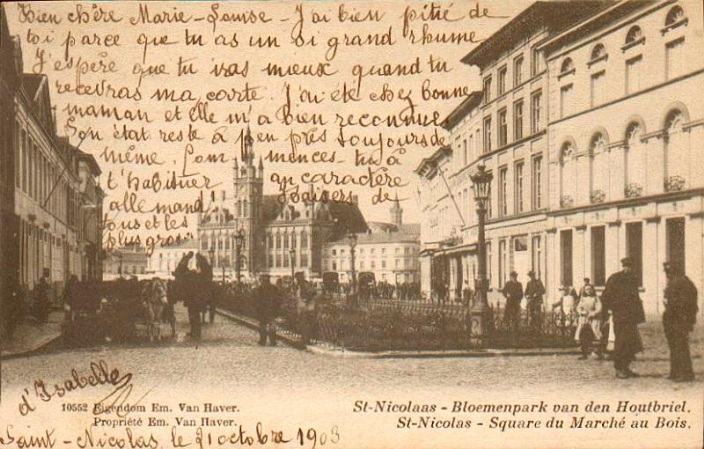 Bien chère Marie-Louise - J'ai bien pitié de
toi parce que tu as un si grand rhume
J'espère que tu iras mieux quand tu
recevras ma carte. J'ai été chez bonne
maman et elle m'a bien reconnue
Son état reste à peu près toujours de
même. Commences-tu à
t'habituer au caractère
allemand Baisers de
tous et les
plus gros
d'Isabelle
10552 Eigendom Em. Van Haver.
Propriété Em. Van Haver.
St-Nicolaas - Bloemenpark van den Houtbriel.
St-Nicolas - Square du Marché au Bois.
Saint-Nicolas, le 21 octobre 1903